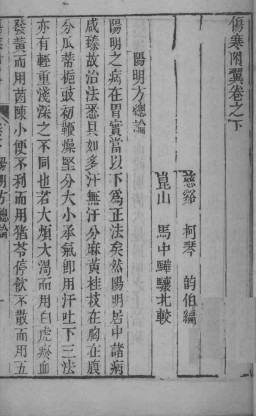 傷寒附翼卷之下
慈谿 柯琴 韵伯編
崑山 馬中驊驤北較
陽明方總論
陽明之病在胃實當以下為正法矣然陽明居中諸病
咸臻故治法悉具如多汗無汗分麻黃桂枝在胸在腹
分瓜蒂梔豉初鞕燥堅分大小承氣即用汗吐下三法
亦有輕重淺深之不同也若大煩大渴而用白虎瘀血
發黃而用茵陳小便不利而用猪苓停飲不散而用五
陽明方總論